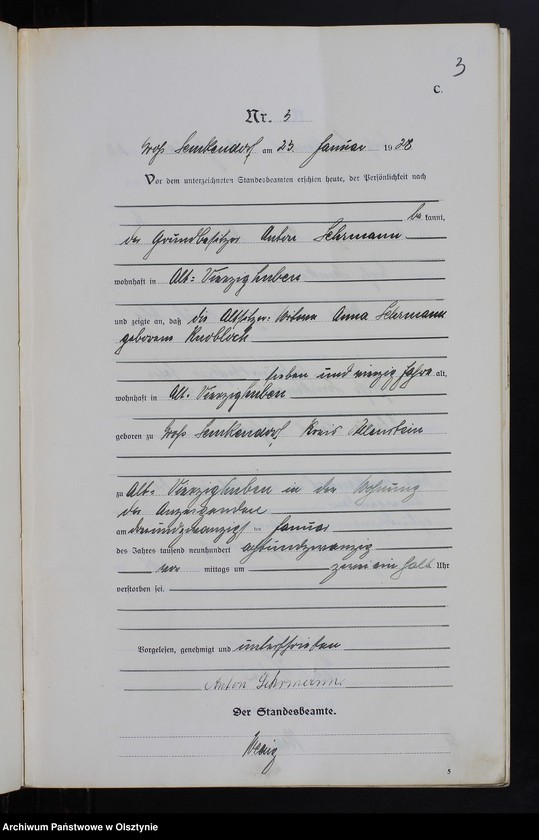 3
C.
Nr. 3
Groß Lemkendorf am 23. Januar 1928
Vor dem unterzeichneten Standesbeamten erschien heute, der Persönlichkeit nach
be kannt,
der Grundbesitzer Anton Lehrmann
wohnhaft in Alt-Vierzighuben
und zeigte an, daß die Altsitzer-Witwe Anna Lehrmann
geborene Knobloch
sieben und vierzig Jahre alt,
wohnhaft in Alt-Vierzighuben
geboren zu Groß Lemkendorf, Kreis Allenstein
zu Alt-Vierzighuben in der Wohnung
des Anzeigenden
am dreiundzwanzigsten Januar
des Jahres tausend neunhundert achtundzwanzig
vor mittags um ein halb Uhr
verstorben sei.
Vorgelesen, genehmigt und unterschrieben
Anton Lehrmann
Der Standesbeamte.
5
Archiwum Państwowe w Olsztynie